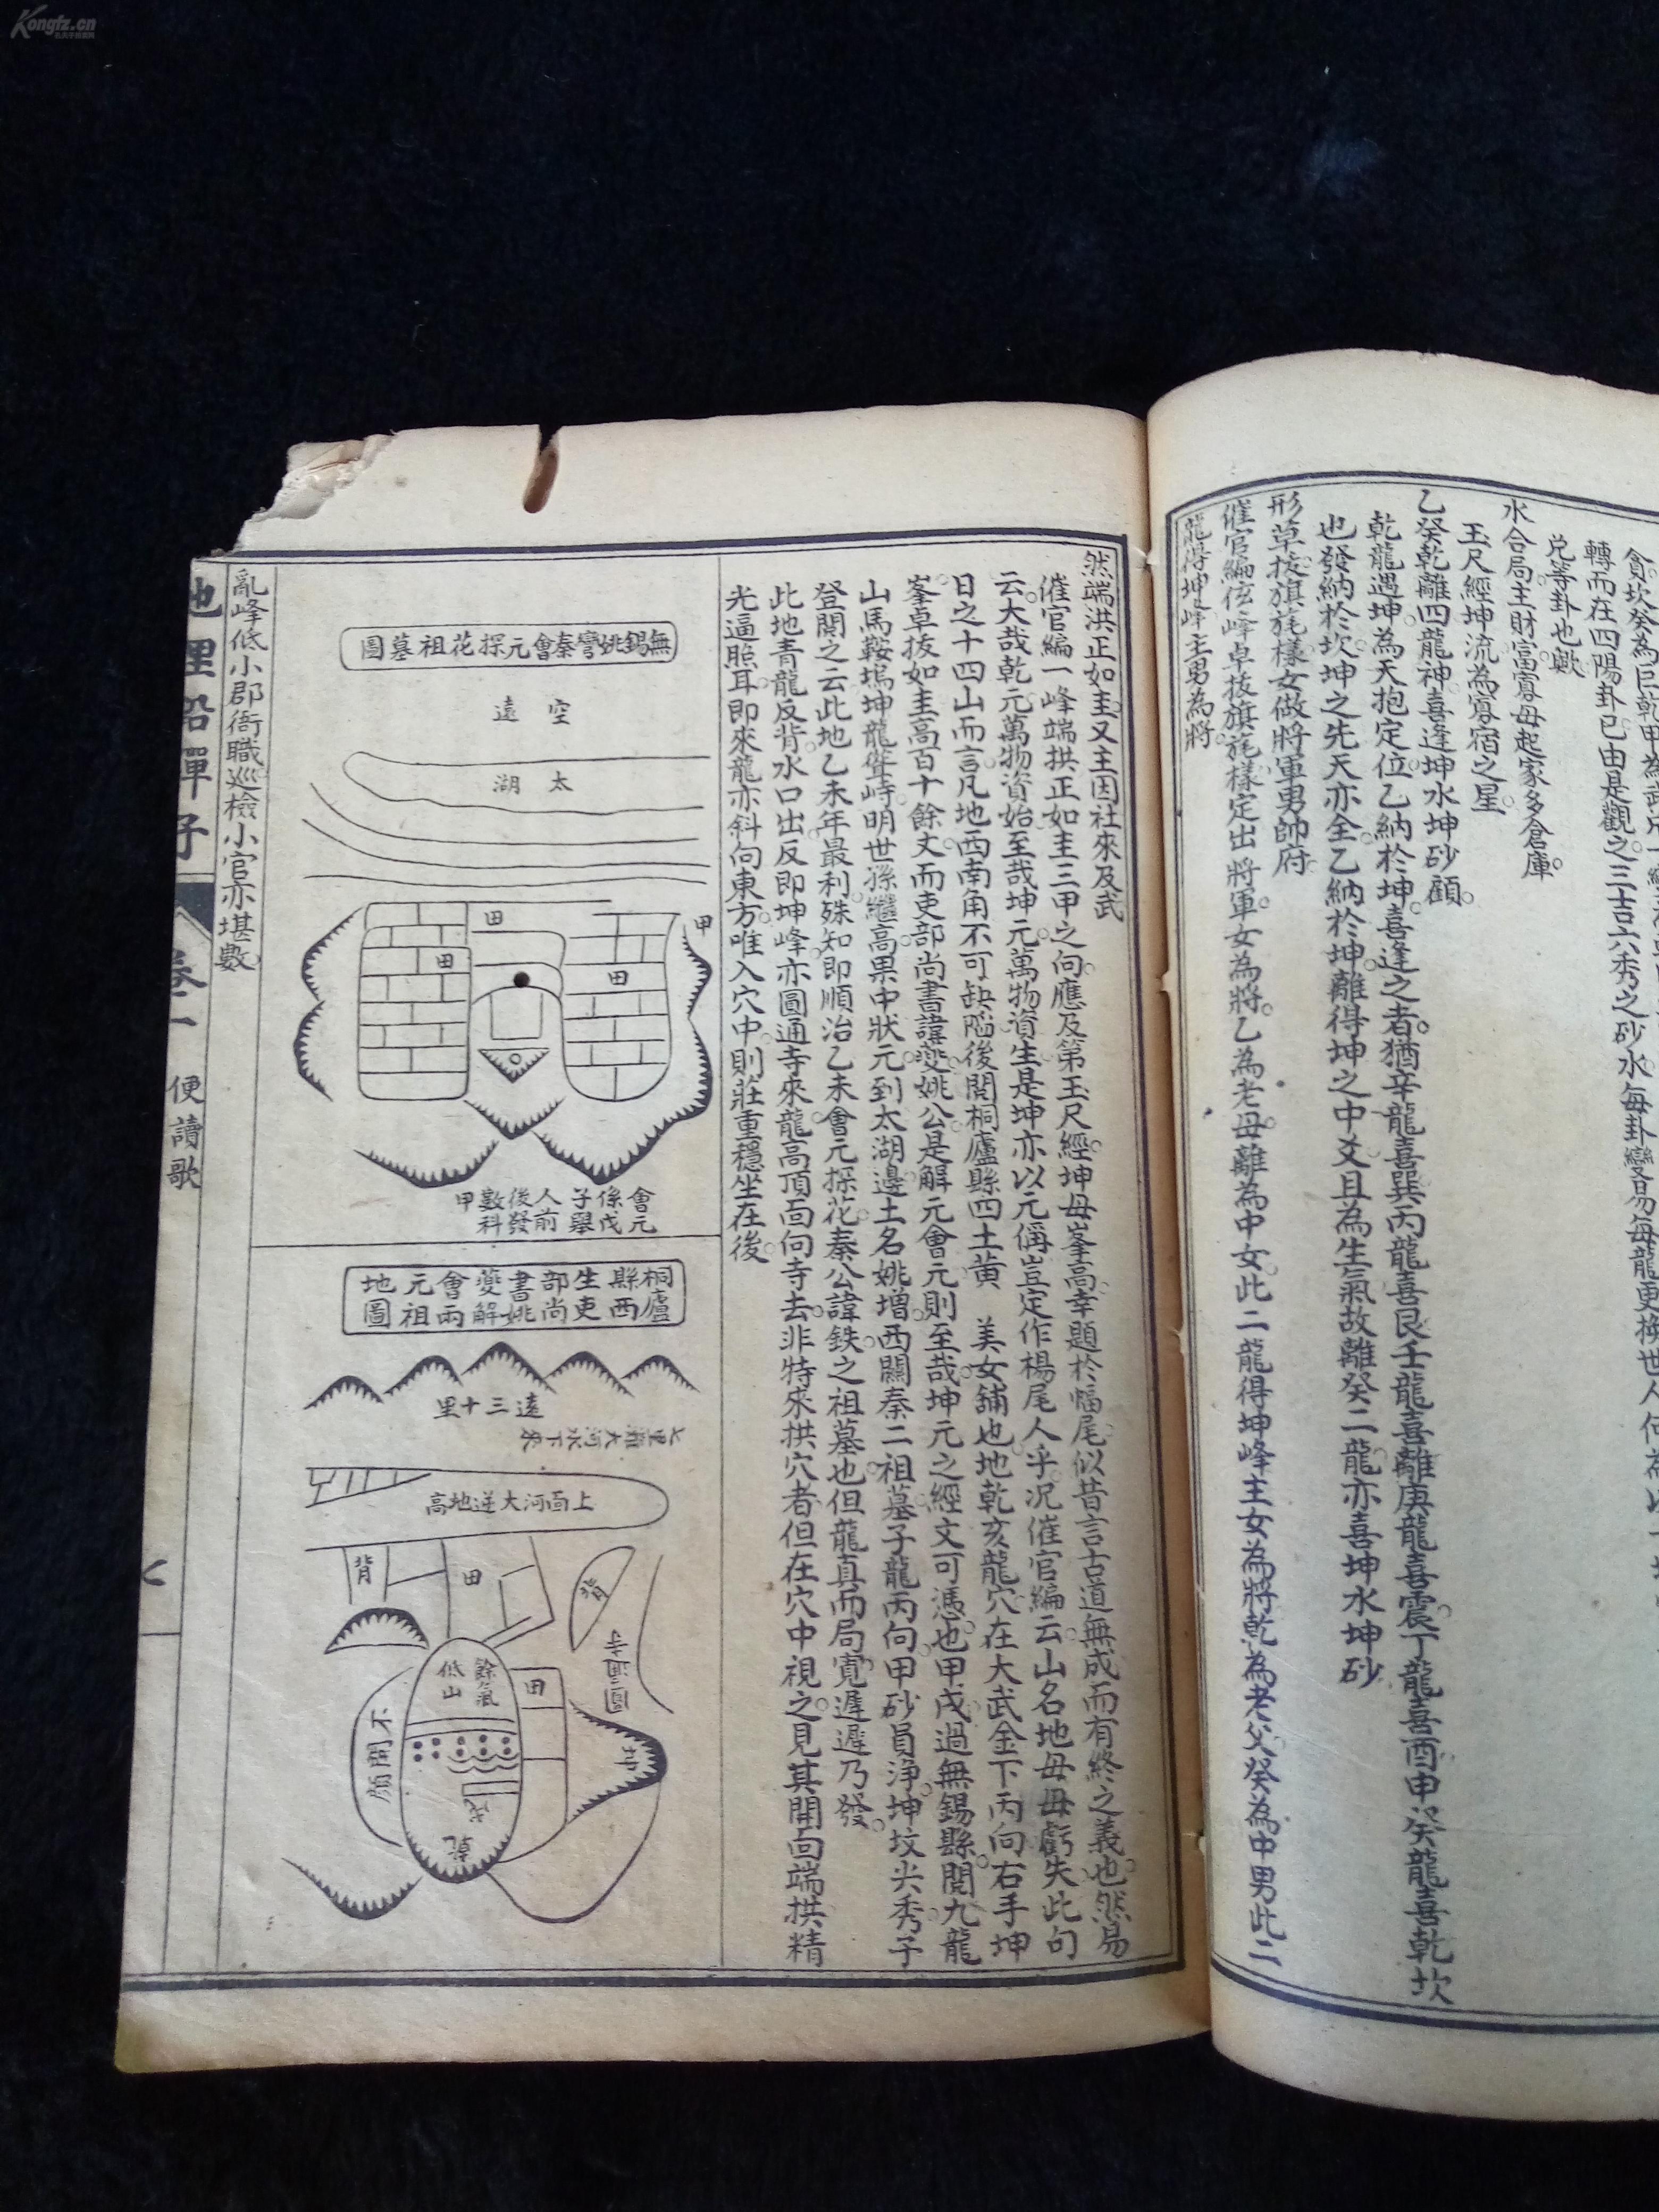 Kongfz.cn
轉而在四陽卦已由是觀之三吉六秀之砂水每卦變易每龍更換世人何為以
兌等卦也歟
水合局主財富寡母起家多倉庫
玉尺經坤流為寡宿之星
乙癸乾離四龍神喜逢坤水坤砂顧
乾龍遇坤為天抱定位乙納於坤喜逢之者猶辛龍喜巽丙龍喜艮壬龍喜離庚龍喜震丁龍喜酉甲癸龍喜乾坎
也發納於坎坤之先天亦全乙納於坤離得坤之中爻且為生氣故離癸二龍亦喜坤水坤砂
形草拔旗旄樣女做將軍男帥府
催官編弦峰卓拔旗旄樣定出將軍女為將乙為老母離為中女此二龍得坤峰主女為將乾為老父癸為中男此二
龍得坤峰主男為將
然端洪正如圭又主因社來及武
催官編一峰端拱正如圭三甲之向應及第玉尺經坤母峯高幸題於幅尾似昔言古道無成而有終之義也然易
云大哉乾元萬物資始至哉坤元萬物資生是坤亦以元偁豈定作楊尾人乎況催官編云山名地母母虧失此句
日之十四山而言凡地西南角不可缺陷後閱桐廬縣四土黃 美女舖也地乾亥龍穴在大武金下丙向右手坤
峯卓拔如圭高百十餘丈而吏部尚書諱夔姚公是解元會元則至哉坤元之經文可憑也甲戌過無錫縣閱九龍
山馬鞍塢坤龍聳峙明世孫繼高果中狀元到太湖邊土名姚增西關秦二祖墓子龍丙向甲砂員淨坤坟尖秀子
登開之云此地乙未年最利殊知即順治乙未會元探花秦公諱鉄之祖墓也但龍真而局寬遲遲乃發
此地青龍反背水口出反即坤峰亦圖通寺來龍高頂面向寺去非特來拱穴者但在穴中視之見其開向端拱精
光逼照耳即來龍亦斜向東方唯入穴中則莊重穩坐在後
無錫姚彎秦會元探花祖墓圖
空遠
太湖
甲
田
田
田
會元係戊子舉人前後發數科甲
桐廬縣西生吏部尚書姚夔解會兩元祖地圖
遠三十里
七里灘大河水下來
上面河大逆地高
背
田
背
餘氣
低山
田
寺
不開顏
亂峰低小郡衙職巡檢小官亦堪數
地理鉛彈子
卷一
便讀歌
七